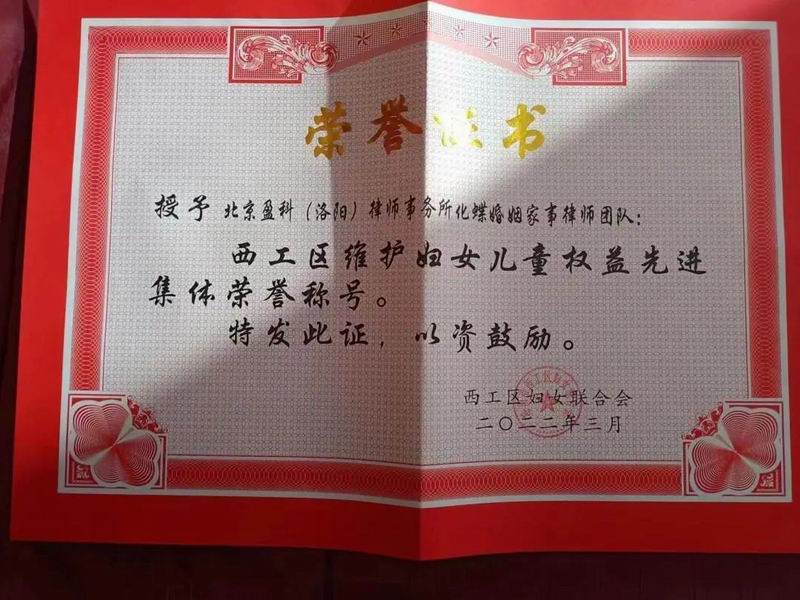 荣誉证书
授予 北京盈科（洛阳）律师事务所化蝶婚姻家事律师团队：
西工区维护妇女儿童权益先进
集体荣誉称号。
特发此证，以资鼓励。
西工区妇女联合会
二〇二二年三月